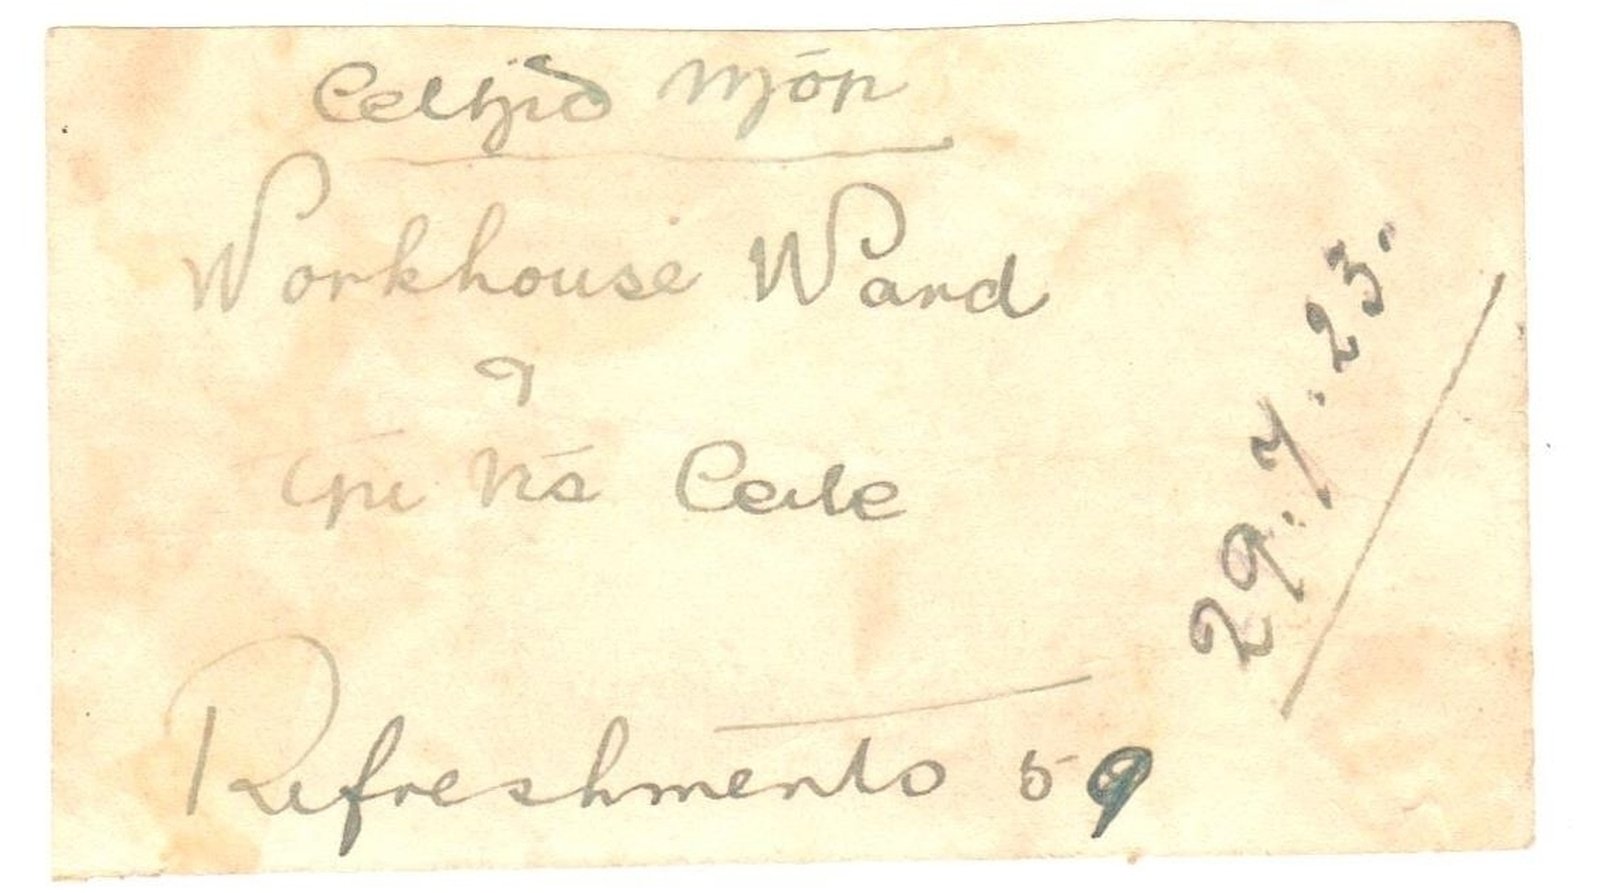 Ceiliḋ Mór
Workhouse Ward
⁊
Trí Na Ceile
Refreshments 59
29.7.23.